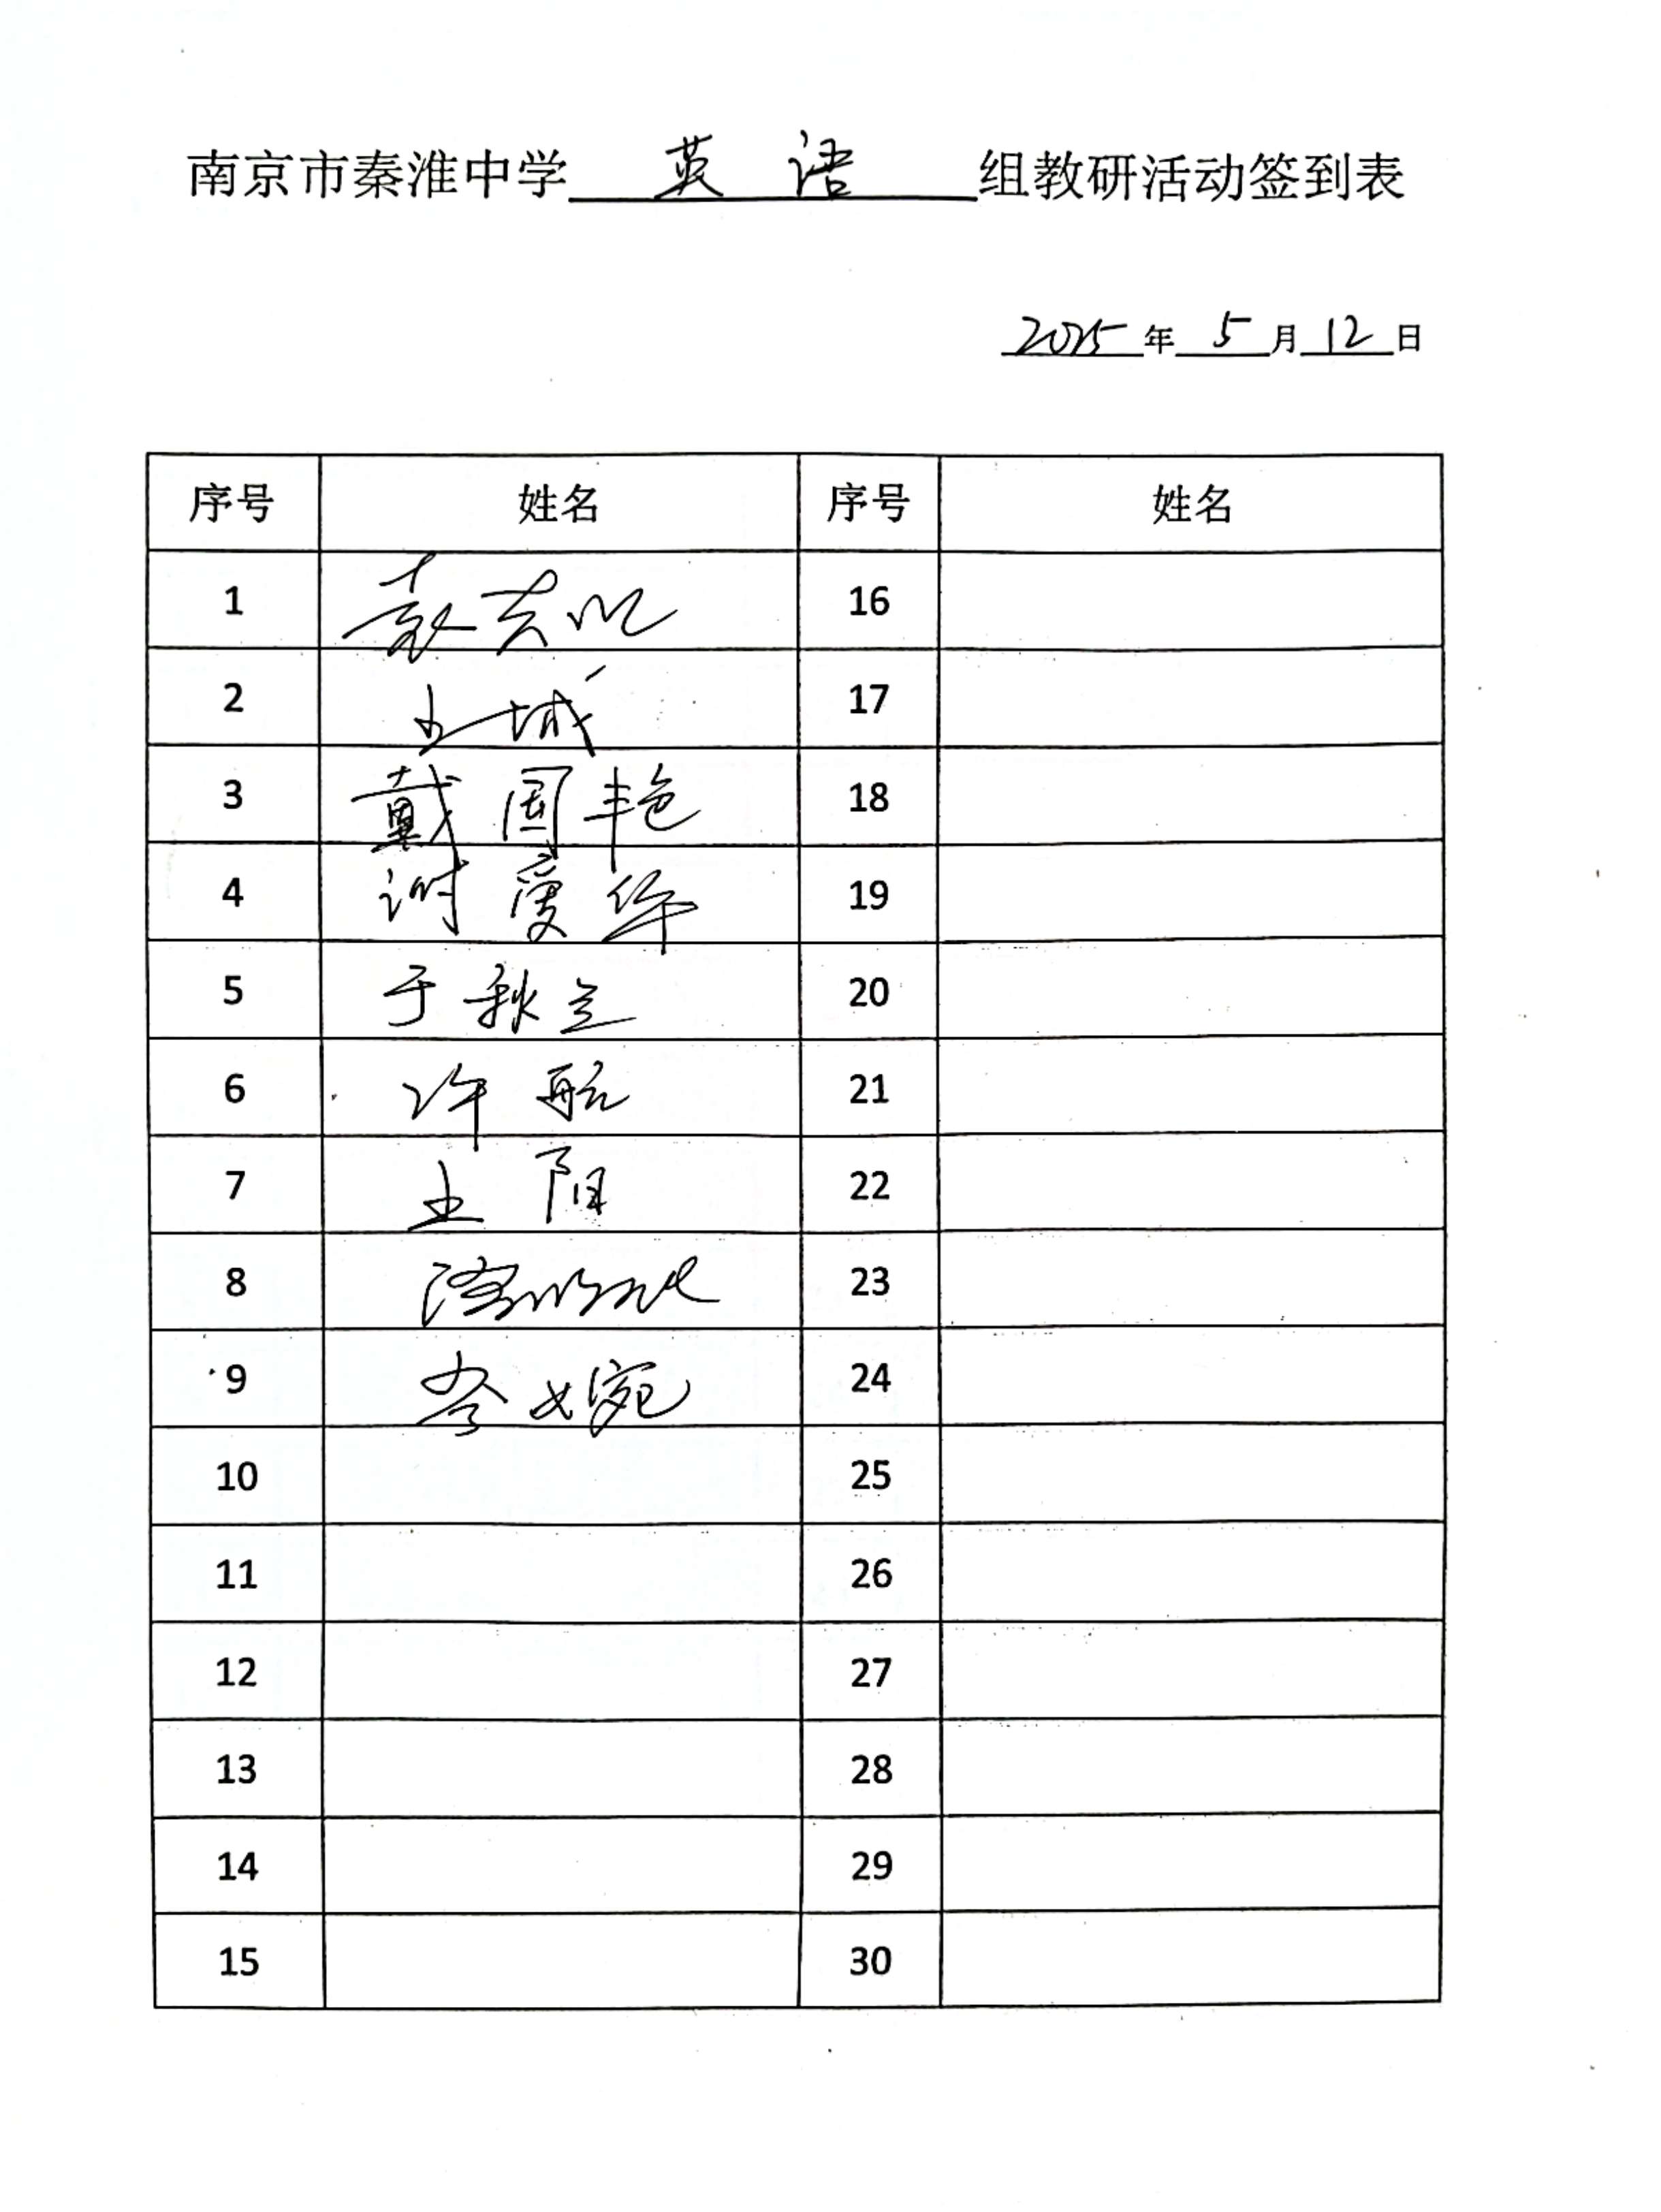 南京市秦淮中学 英 语 组教研活动签到表
2025 年 5 月 12 日
序号 姓名 序号 姓名
1 袁 16
2 王城 17
3 戴国艳 18
4 谢爱华 19
5 于秋兰 20
6 许航 21
7 王阳 22
8 23
9 24
10 25
11 26
12 27
13 28
14 29
15 30